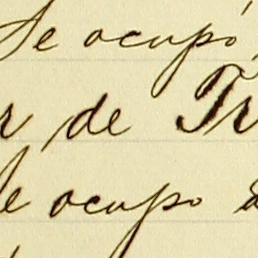 Se ocupó
r de Tr
e ocupo